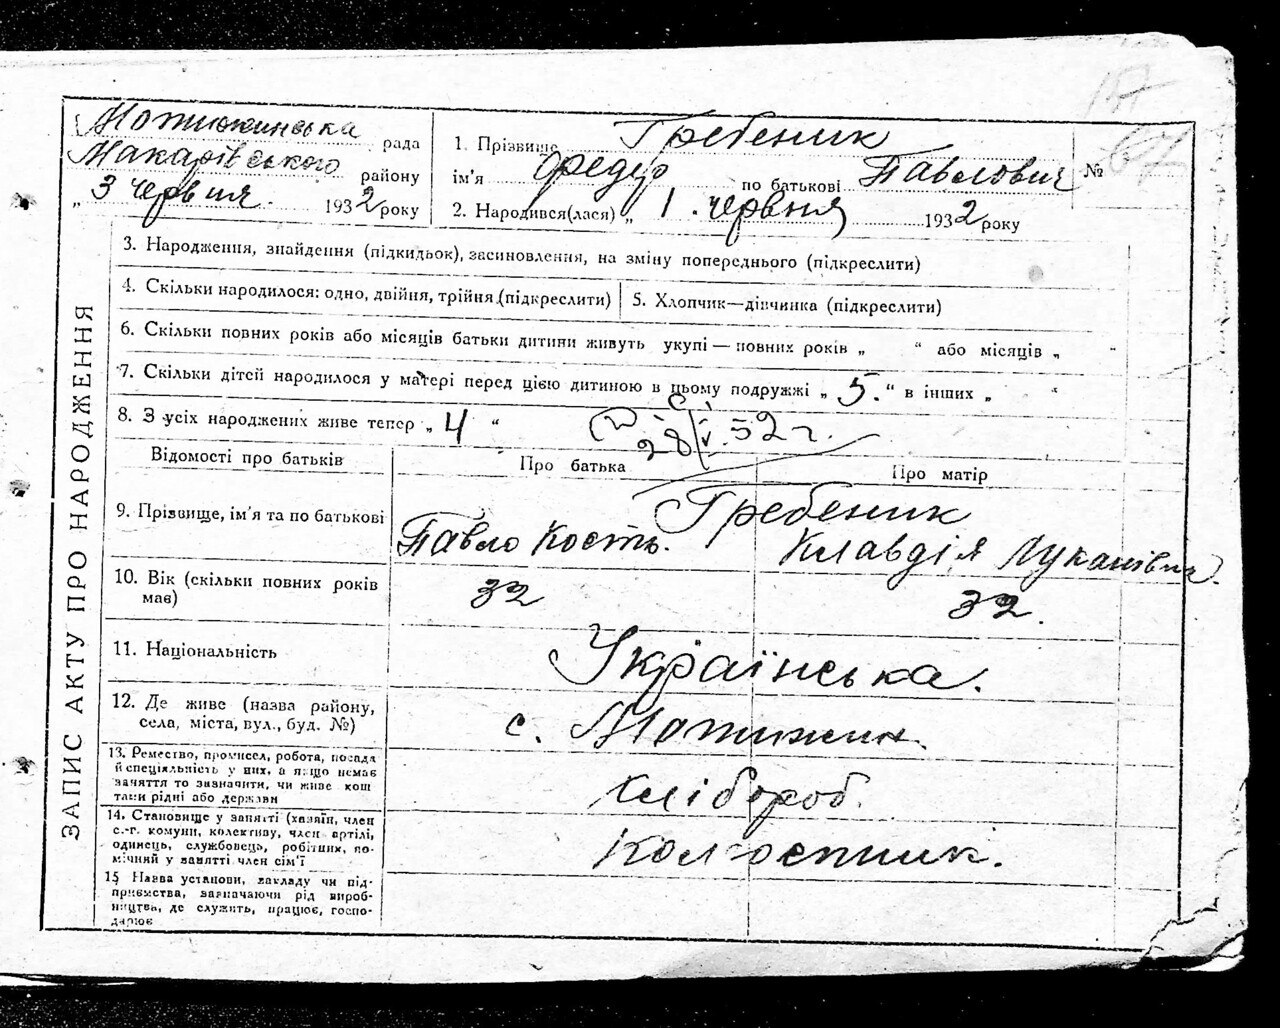 Мотижинська рада
Макарівського району
„ 3 червня 1932 року
1. Прізвище Гребеник
ім'я Федір по батькові Павлович
2. Народився(лася) „ 1. червня 1932 року
№ 67
17
3. Народження, знайдення (підкидьок), засиновлення, на зміну попереднього (підкреслити)
4. Скільки народилося: одно, двійня, трійня (підкреслити)
5. Хлопчик—дівчинка (підкреслити)
6. Скільки повних років або місяців батьки дитини живуть укупі — повних років „ “ або місяців „ “
7. Скільки дітей народилося у матері перед цією дитиною в цьому подружжі „ 5. “ в інших „ “
8. З усіх народжених живе тепер „ 4 “
28/V 52 г.
Відомості про батьків
Про батька
Про матір
9. Прізвище, ім'я та по батькові
Гребеник
Павло Кость.
Клавдія
10. Вік (скільки повних років
має)
32
32.
11. Національність
Українська.
12. Де живе (назва району,
села, міста, вул., буд. №)
с. Мотижин.
13. Ремество, промисел, робота, посада
й спеціяльність у них, а якщо немає
заняття то зазначити, чи живе кош
тами рідні або держави
хлібороб.
14. Становище у занятті (хазяїн, член
с.-г. комуни, колективу, член артілі,
одинець, службовець, робітник, по-
мічний у занятті член сім'ї
Колгоспник.
15 Назва установи, закладу чи під-
приємства, зазначаючи рід вироб-
ництва, де служить, працює, госпо-
дарює
ЗАПИС АКТУ ПРО НАРОДЖЕННЯ